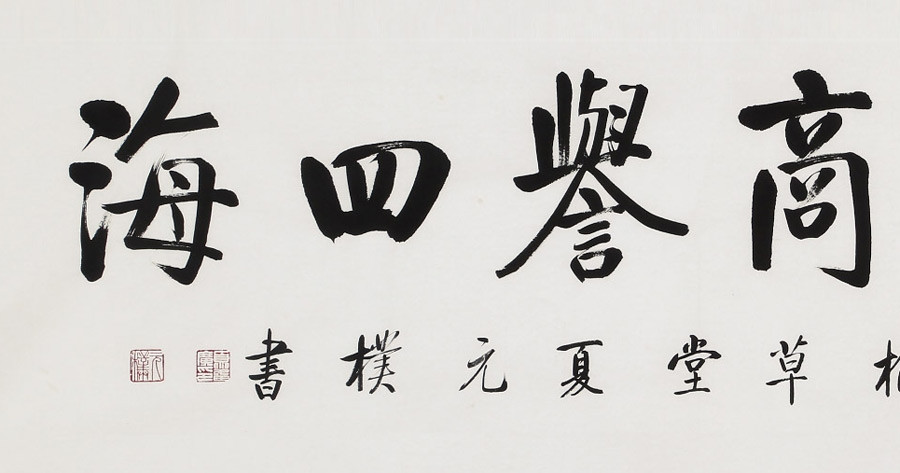 商譽四海
草堂夏元樸書
元樸